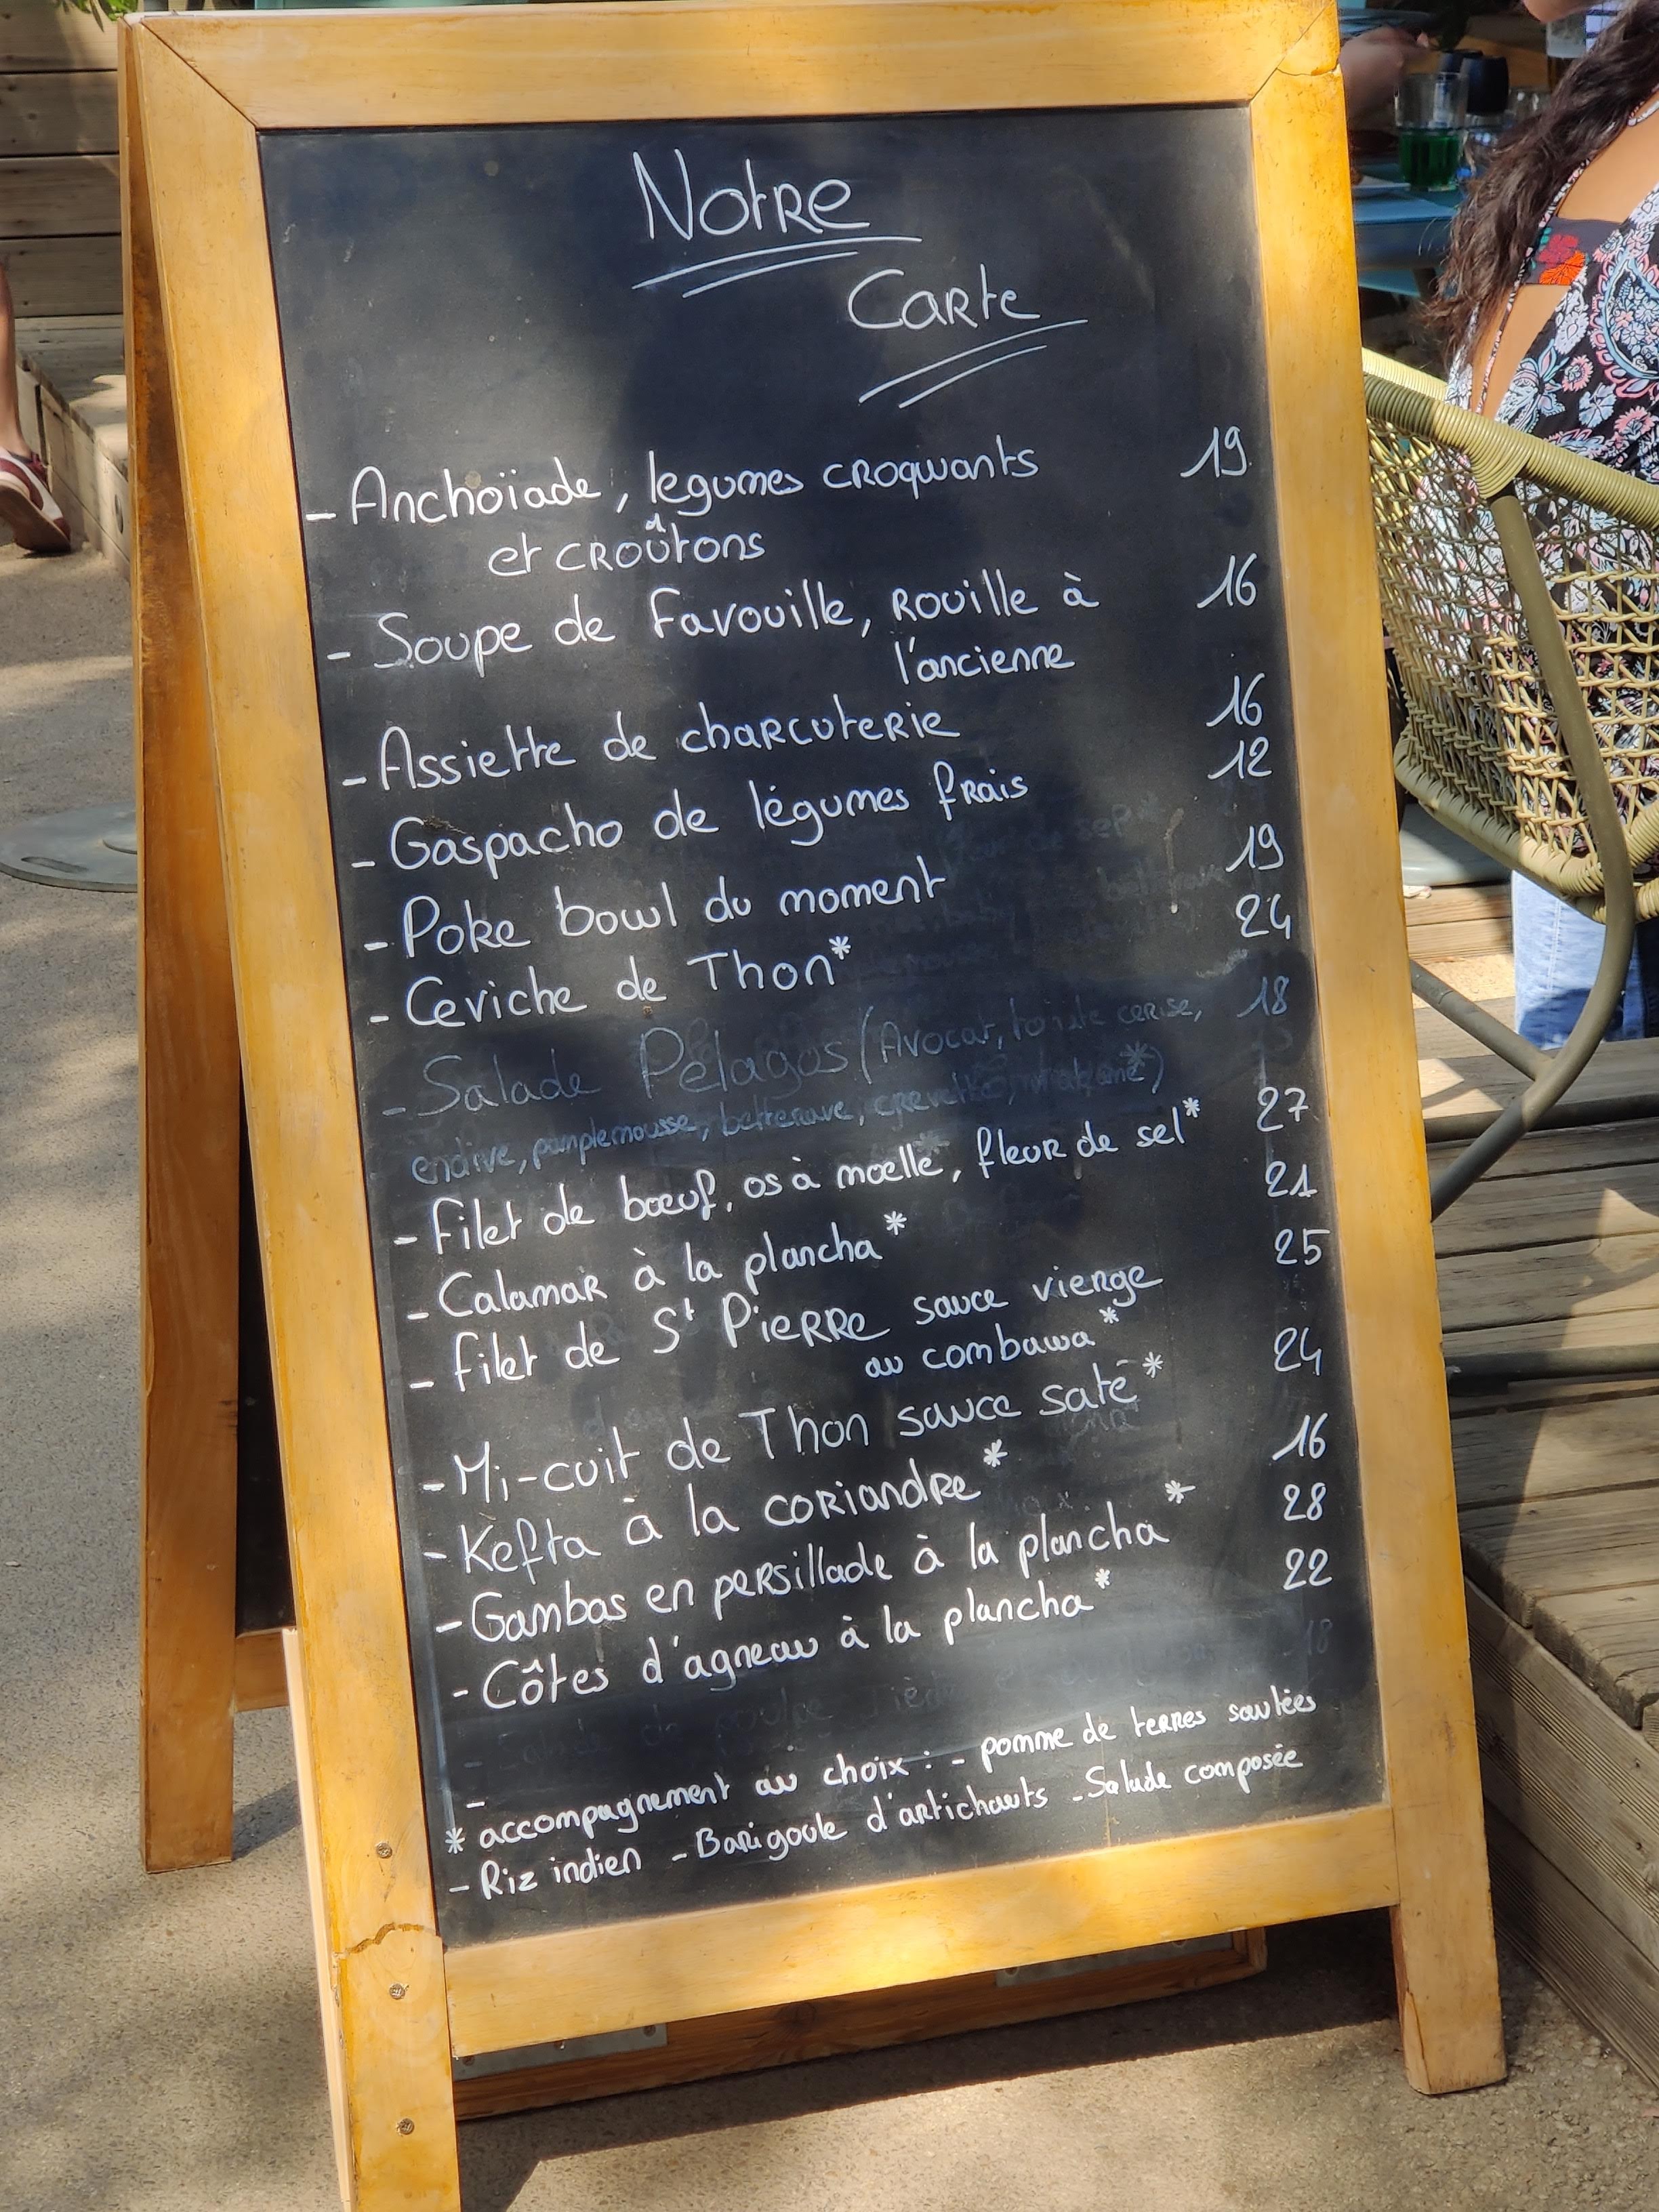 Notre
Carte
- Anchoïade, legumes croquants 19
et croûtons
- Soupe de Favouille, Rouille à 16
l'ancienne
- Assiette de charcuterie 16
- Gaspacho de légumes frais 12
- Poke bowl du moment 19
- Ceviche de Thon* 24
- Salade Pélagos (Avocat, tomate cerise, 18
endive, pamplemousse, betterave, crevette, wakamé*)
- Filet de bœuf, os à moelle, fleur de sel* 27
- Calamar à la plancha* 21
- Filet de St Pierre sauce vierge 25
au combawa*
- Mi-cuit de Thon sauce saté* 24
- Kefta à la coriandre* 16
- Gambas en persillade à la plancha* 28
- Côtes d'agneau à la plancha* 22
18
-
* accompagnement au choix : - pomme de terres sautées
- Riz indien - Barigoule d'artichauts - Salade composée